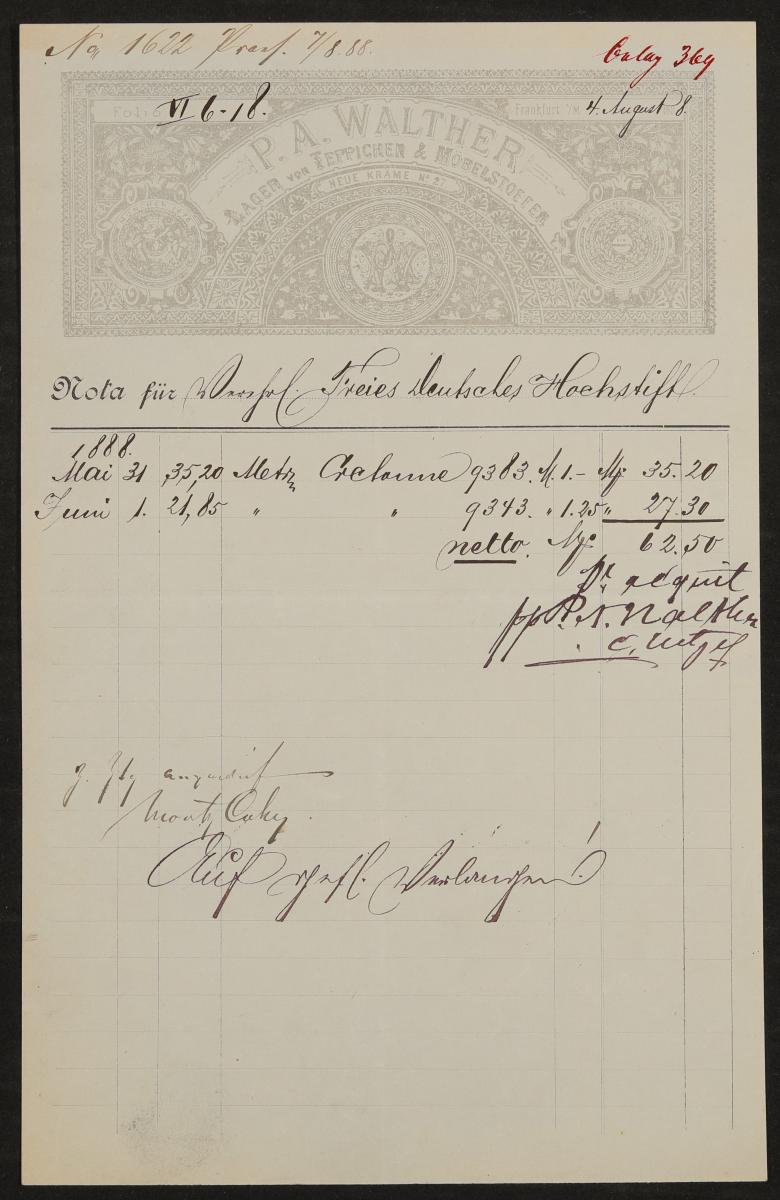 No 1622 7/8.88.
Belag 369
Folio VI 6-18.
Frankfurt a/M. 4. August 8.
P. A. WALTHER
LAGER VON TEPPICHEN & MÖBELSTOFFEN
NEUE KRÄME No 27
Nota für Verehrl. Freies Deutsches Hochstift.
1888.
Mai 31 35,20 Metr. Cretonne 9383. M. 1.- M. 35.20
Juni 1. 21,85 " " 9343. " 1.25 " 27.30
netto. M. 62.50
pr acquit
pp P. A. Walther
z. Ztg angewiesen
Auf gefl. Verlangen!